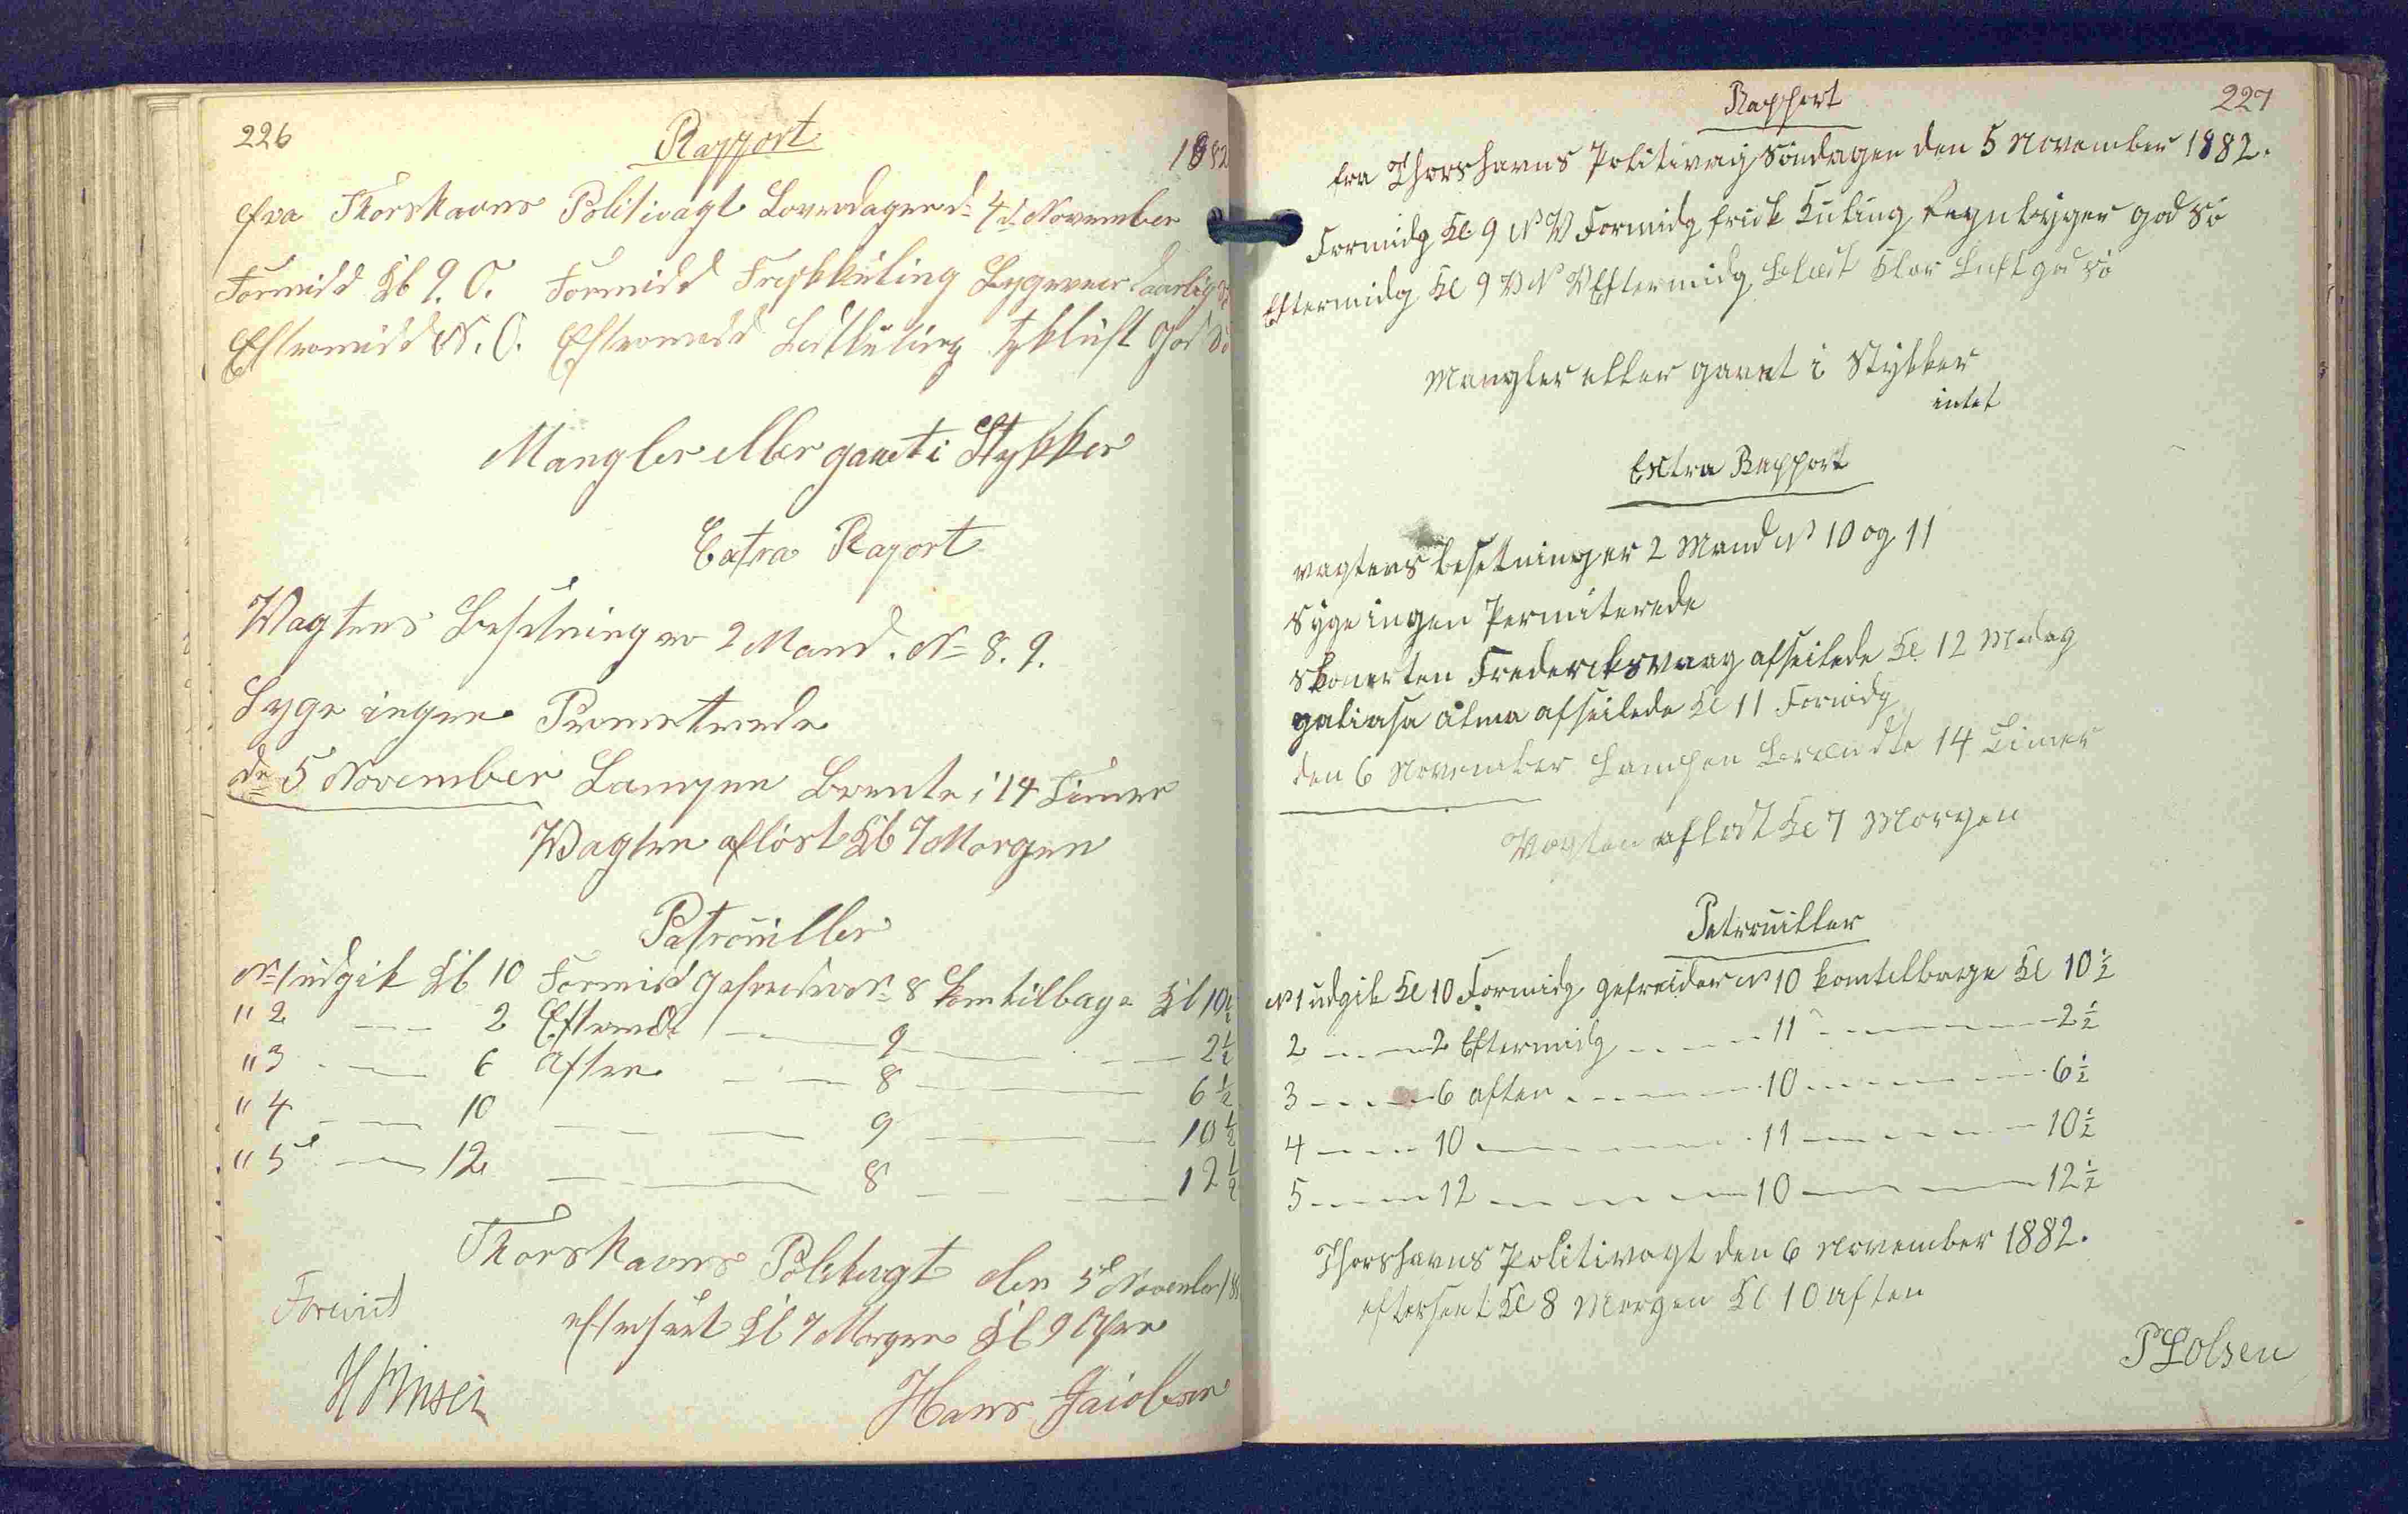 226
Rapport
1882
fra Thorshavns Politivagt Løverdagen d: 4d November
Formidd Kl 9. O. Formidd Friskkuling Bygeveir daarlig
Eftermidd N. O. Eftermidd Ladkuling tykluft God Sö
Mangler eller gaaet i Stykker
Extra Raport
Wagtens Besetning er 2 Mand. No 8. 9.
Syge ingen Permeterede
dn 5 November Lampen Brente i 14 Timer
Wagten aflöst Kl 7 Morgen
Patrouiller
No 1 udgik Kl 10 Formidd Gefreider No 8 kom tilbage Kl 10½
" 2 — 2 Eftermd — 9 — 2½
" 3 — 6 Aften — 8 — 6½
" 4 — 10 — 9 — 10½
" 5 — 12 — 8 — 12½
Thorshavns Politivagt den 5d November 18
efterseet Kl 7 Morgen Kl 9 Aften
Forevist
Hans Jacobsen
H Finsen
Rapport
227
fra Thorshavns Politivagt Söndagen den 5 November 1882.
Formidg Kl 9 N V Formidg frisk Kuling Regnbyger god Sö
Eftermidg Kl 9 V N V Eftermidg blæst klar Luft god Sö
Mangler eller gaaet i Stykker
intet
Extra Rapport
vagtens besetning er 2 Mand No 10 og 11
Syge ingen Permiterede
skonerten Fredercksvaag afseilede Kl 12 Medag
galiasa alma afseilede Kl 11 Formidg
den 6 November Lampen Brændte 14 Timer
Vagten aflöst Kl 7 Morgen
Patrouiller
No 1 udgik Kl 10 Formidg gefreider No 10 kom telbage Kl 10½
2 — 2 Eftermidg — 11 — 2½
3 — 6 aften — 10 — 6½
4 — 10 — 11 — 10½
5 — 12 — 10 — 12½
Thorshavns Politivagt den 6 November 1882.
efterseet Kl 8 Morgen Kl 10 aften
Olsen